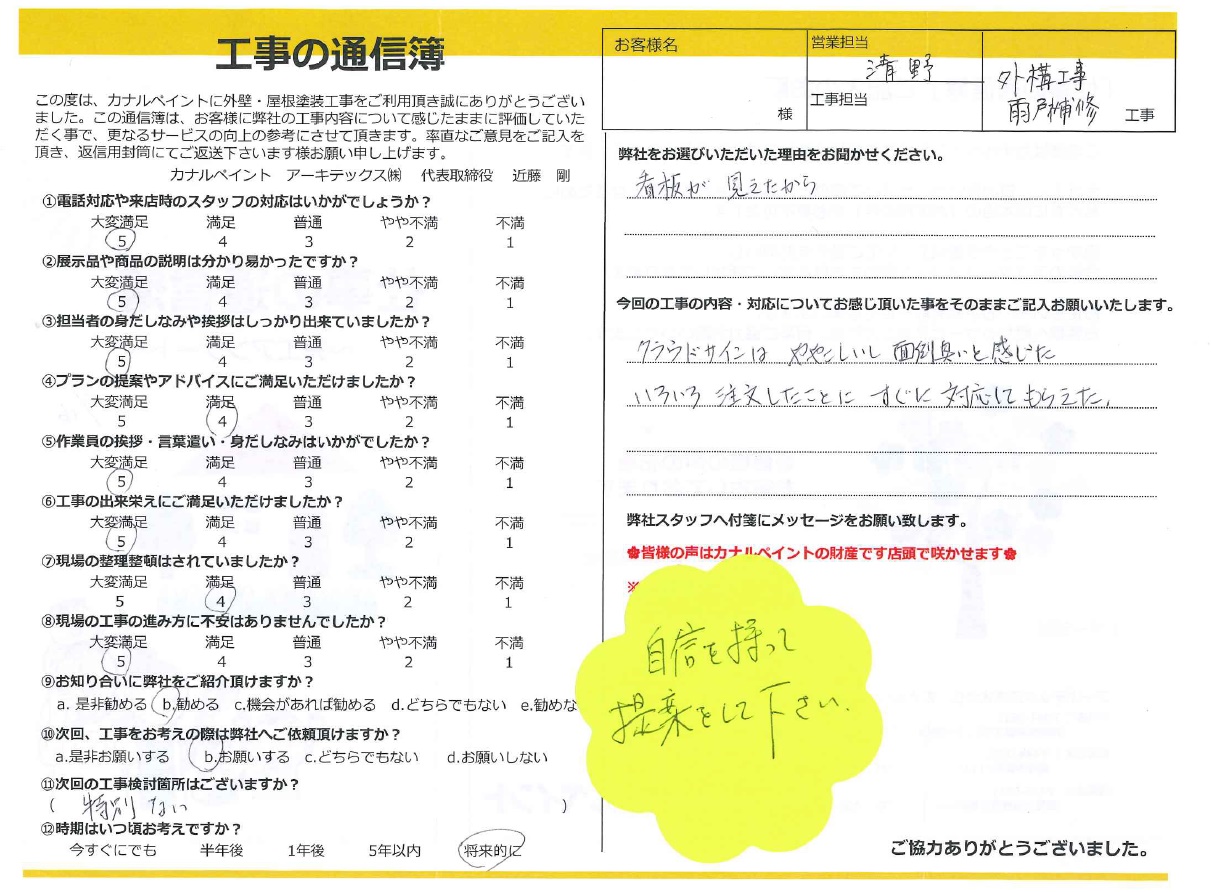 工事の通信簿
この度は、カナルペイントに外壁・屋根塗装工事をご利用頂き誠にありがとうござい
ました。この通信簿は、お客様に弊社の工事内容について感じたままに評価していた
だく事で、更なるサービスの向上の参考にさせて頂きます。率直なご意見をご記入を
頂き、返信用封筒にてご返送下さいます様お願い申し上げます。
カナルペイント アーキテックス㈱ 代表取締役 近藤 剛
①電話対応や来店時のスタッフの対応はいかがでしょうか？
大変満足 満足 普通 やや不満 不満
5 4 3 2 1
②展示品や商品の説明は分かり易かったですか？
大変満足 満足 普通 やや不満 不満
5 4 3 2 1
③担当者の身だしなみや挨拶はしっかり出来ていましたか？
大変満足 満足 普通 やや不満 不満
5 4 3 2 1
④プランの提案やアドバイスにご満足いただけましたか？
大変満足 満足 普通 やや不満 不満
5 4 3 2 1
⑤作業員の挨拶・言葉遣い・身だしなみはいかがでしたか？
大変満足 満足 普通 やや不満 不満
5 4 3 2 1
⑥工事の出来栄えにご満足いただけましたか？
大変満足 満足 普通 やや不満 不満
5 4 3 2 1
⑦現場の整理整頓はされていましたか？
大変満足 満足 普通 やや不満 不満
5 4 3 2 1
⑧現場の工事の進み方に不安はありませんでしたか？
大変満足 満足 普通 やや不満 不満
5 4 3 2 1
⑨お知り合いに弊社をご紹介頂けますか？
a. 是非勧める b,勧める c.機会があれば勧める d.どちらでもない e.勧めな
⑩次回、工事をお考えの際は弊社へご依頼頂けますか？
a.是非お願いする b.お願いする c.どちらでもない d.お願いしない
⑪次回の工事検討箇所はございますか？
( 特別 ない )
⑫時期はいつ頃お考えですか？
今すぐにでも 半年後 1年後 5年以内 将来的に
お客様名
様
営業担当
清野
工事担当
外構工事
雨戸補修 工事
弊社をお選びいただいた理由をお聞かせください。
看板が 見えたから
今回の工事の内容・対応についてお感じ頂いた事をそのままご記入お願いいたします。
クラウドサインは ややこしいし 面倒臭いと感じた
いろいろ 注文したことに すぐに 対応して もらえた。
弊社スタッフへ付箋にメッセージをお願い致します。
✿皆様の声はカナルペイントの財産です店頭で咲かせます✿
※
自信を持って
提案をして下さい.
ご協力ありがとうございました。